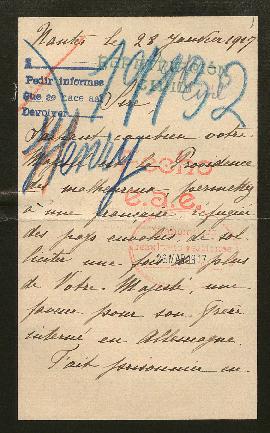 Nantes le 28 Janvier 1917
REPATRIACIÓN
A
Pedir informes
Que se hace así
Devolver
191132
Sire,
Sachant combien votre
Majesté est la Providence
des malheureux permettez
à une française réfugiée
des pays envahis, de sol
liciter une fois de plus
de Votre Majesté, une
faveur pour son frère
interné en Allemagne.
Fait prisonnier en
Henry
HECHO
e.a.e.